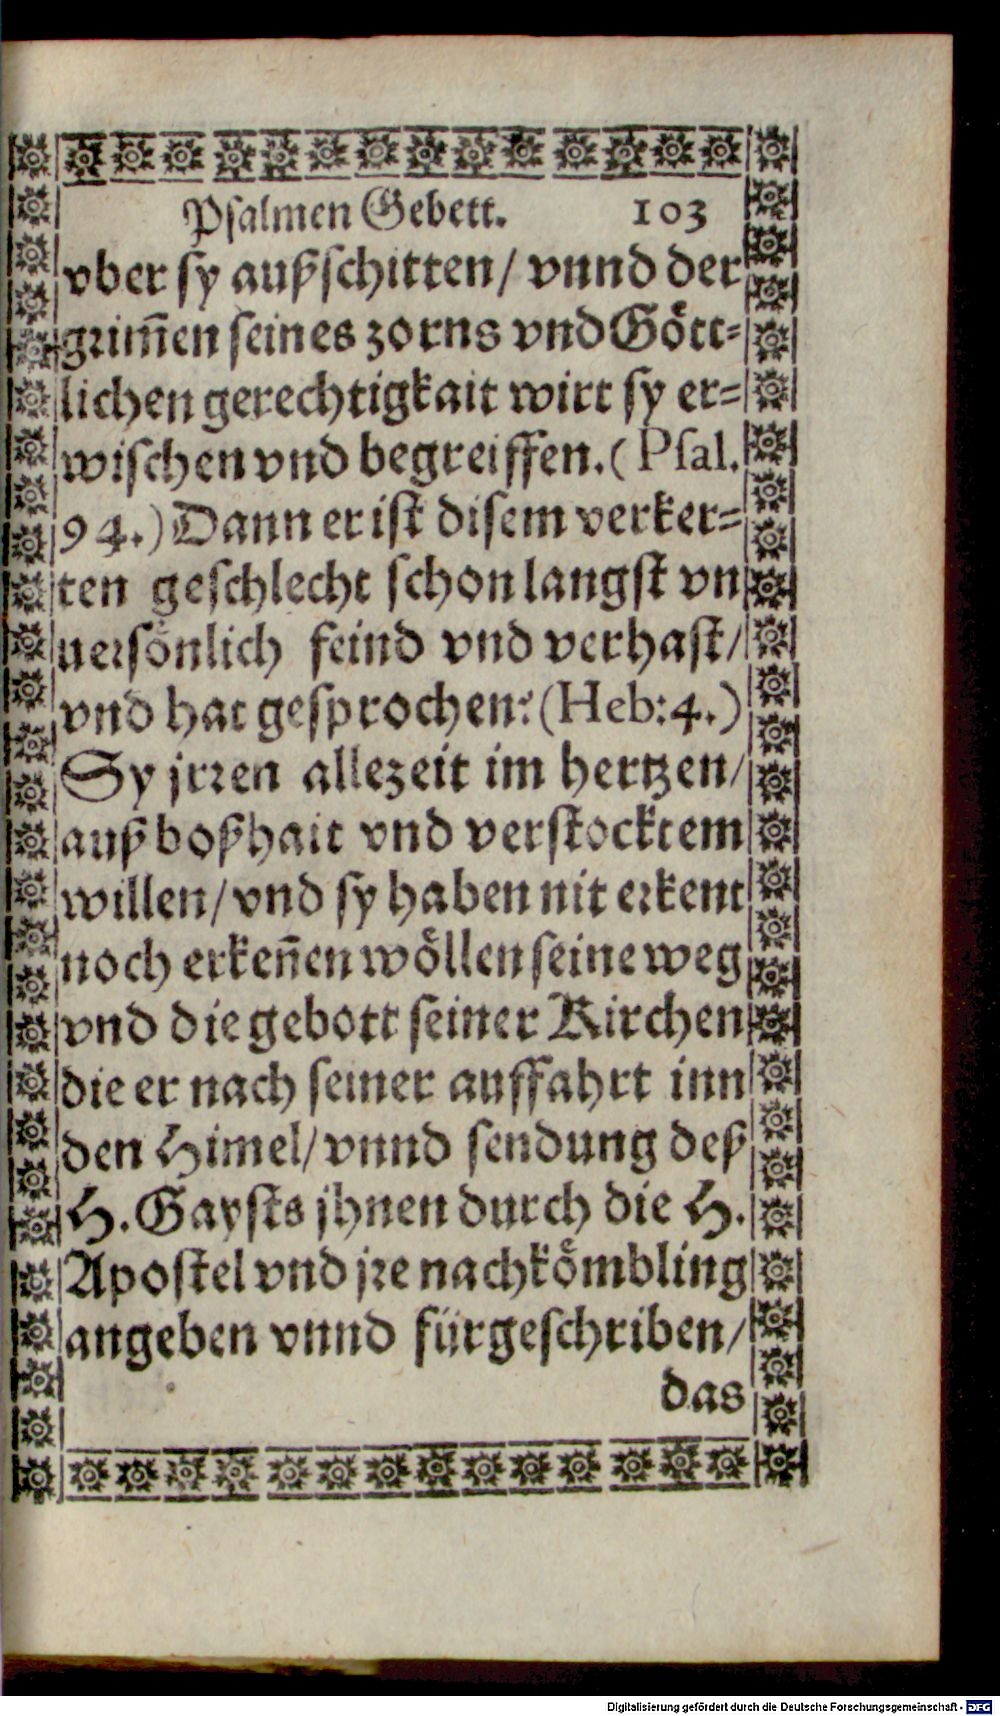 Psalmen Gebett. 103
vber sy außschitten/ vnnd der
grim̃en seines zorns vnd Gött-
lichen gerechtigkait wirt sy er-
wischen vnd begreiffen. (Psal.
94.) Dann er ist disem verker-
ten geschlecht schon langst vn
uersönlich feind vnd verhast/
vnd hat gesprochen: (Heb: 4.)
Sy jrren allezeit im hertzen/
auß boßhait vnd verstocktem
willen/ vnd sy haben nit erkent
noch erkeñen wöllen seine weg
vnd die gebott seiner Kirchen
die er nach seiner auffahrt inn
den Himel/ vnnd sendung deß
H. Gaysts jhnen durch die H.
Apostel vnd jre nachkömbling
angeben vnnd fürgeschriben/
das
Digitalisierung gefördert durch die Deutsche Forschungsgemeinschaft - DFG